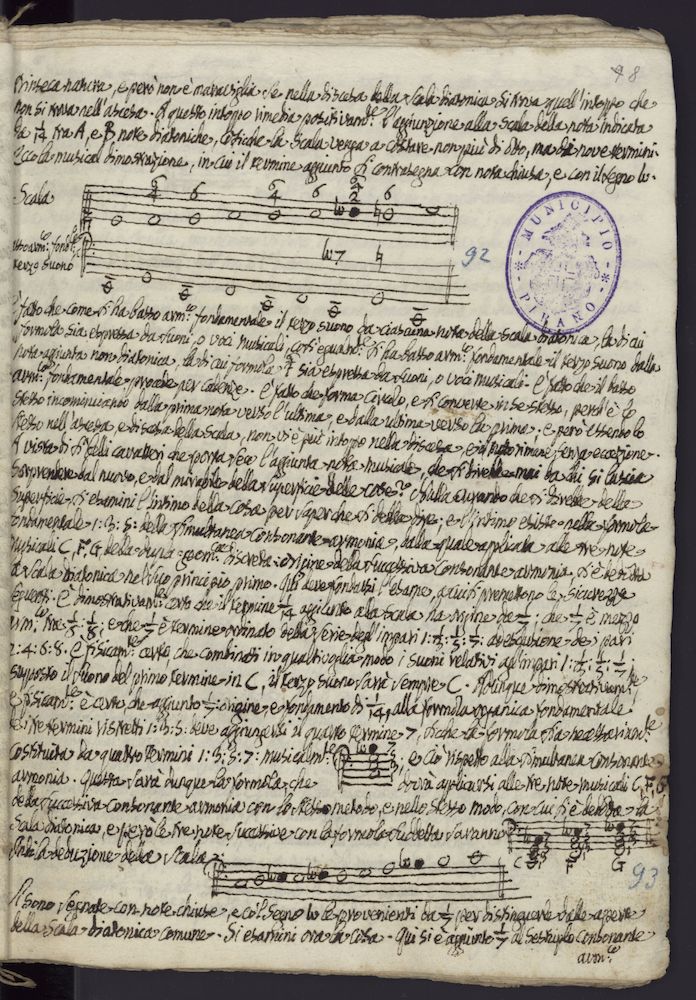 48
trinseca natura, e però non è maraviglia se nella discesa della scala diatonica si trova quell'intoppo che
non si trova nell'ascesa. A questo intoppo rimedia positivam.te l'aggiunzione alla scala della nota indicata
da 1/14 tra A, e B note diatoniche, cosiche la scala venga a costare non più di otto, ma di nove termini.
Ecco la musical dimostrazione, in cui il termine aggiunto si contrasegna con nota chiusa, e con il segno
Scala
6 4 6 6 4 6 6 4 2 6
MUNICIPIO
PIRANO
Basso arm.co fond.le
terzo suono
7
92
È fatto che come si ha basso arm.co fondamentale il terzo suono da ciascuna nota della scala diatonica, la di cui
formola sia espressa da suoni, o voci musicali, così egualm.te si ha basso arm.co fondamentale il terzo suono dalla
nota aggiunta non diatonica, la di cui formola sia espressa da suoni, o voci musicali. È fatto che il basso
arm.co fondamentale procede per cadenze. È fatto che forma circolo, e si converte in se stesso, perch'è lo
stesso incominciando dalla prima nota verso l'ultima, e dalla ultima verso la prima; e però essendo lo
stesso nell'ascesa, e discesa della scala, non vi è più intoppo nella discesa, e il tutto rimane senza eccezione.
A vista di sì belli caratteri che porta seco l'aggiunta nota musicale, che si direbbe mai da chi si lascia
sorprendere dal nuovo, e dal mirabile della superficie delle cose? Ma
superficie si esamini l'intimo della cosa per saper che si debba dire; e l'intimo esiste nella formola
fondamentale 1: 3: 5: della simultanea consonante armonia, dalla quale applicata alle tre note
musicali C, F, G della dupla geom.ca discreta origine della successiva consonante armonia, si è dedotta
la scala diatonica nel suo principio primo. Qui deve fondarsi l'esame, a cui si premettono le sicurezze
seguenti. È dimostrativam.te certo che il termine 1/14 aggiunto alla scala ha origine da 1/7; che 1/7 è mezzo
arm.co tra 1/6: 1/8; e che 1/7 è termine ordinato della serie degl'impari 1: 1/3: 1/5: 1/7: ad esclusione de' pari
2: 4: 6: 8. È fisicam.te certo che combinati in qualsivoglia modo i suoni relativi agl'impari 1: 1/3: 1/5: 1/7,
supposto il suono del primo termine in C, il terzo suono sarà sempre C. Adunque dimostrativam.te,
e fisicam.te è certo, che aggiunto 1/7 origine, e fondamento di 1/14, alla formola organica fondamentale
de' tre termini rispettivi 1: 3: 5: deve aggiungersi il quarto termine 7, sicche la formola sia necessariam.te
costituita da quattro termini 1: 3: 5: 7: musicalm.te, e ciò rispetto alla simultanea consonante
armonia. Questa sarà dunque la formola, che dovrà applicarsi alle tre note musicali C, F, G
della successiva consonante armonia con lo stesso metodo, e nello stesso modo, con cui si è dedotta la
scala diatonica, e però le tre note successive con la formola suddetta saranno
C F G
Quindi la deduzione della scala
93
Si sono segnate con note chiuse, e col segno le provenienti da 1/7 per distinguerle dalle aperte
della scala diatonica comune. Si esamini ora la cosa. Qui si è aggiunto 1/7 al sestuplo consonante
arm.co